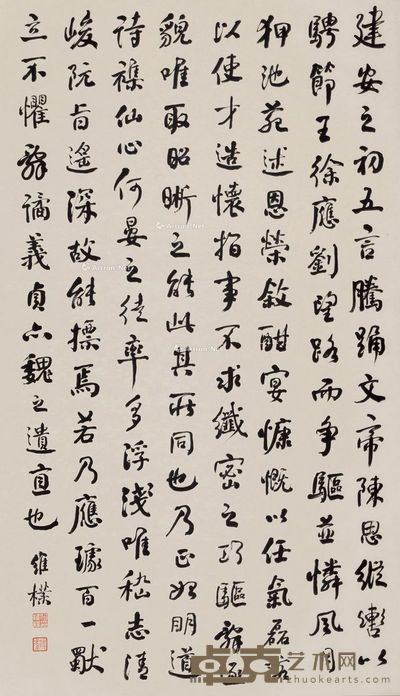 建安之初五言騰踊文帝陳思縱轡以
騁節王徐應劉望路而爭驅並憐風月
狎池苑述恩榮敘酣宴慷慨以任氣磊落
以使才造懷指事不求纖密之巧驅辭逐
貌唯取昭晰之能此其所同也乃正始明道
詩雜仙心何晏之徒率多浮淺唯嵇志清
峻阮旨遙深故能標焉若乃應璩百一獸
立不懼辭譎義貞亦魏之遺直也 維樸
卓克艺术网
zhuokearts.com